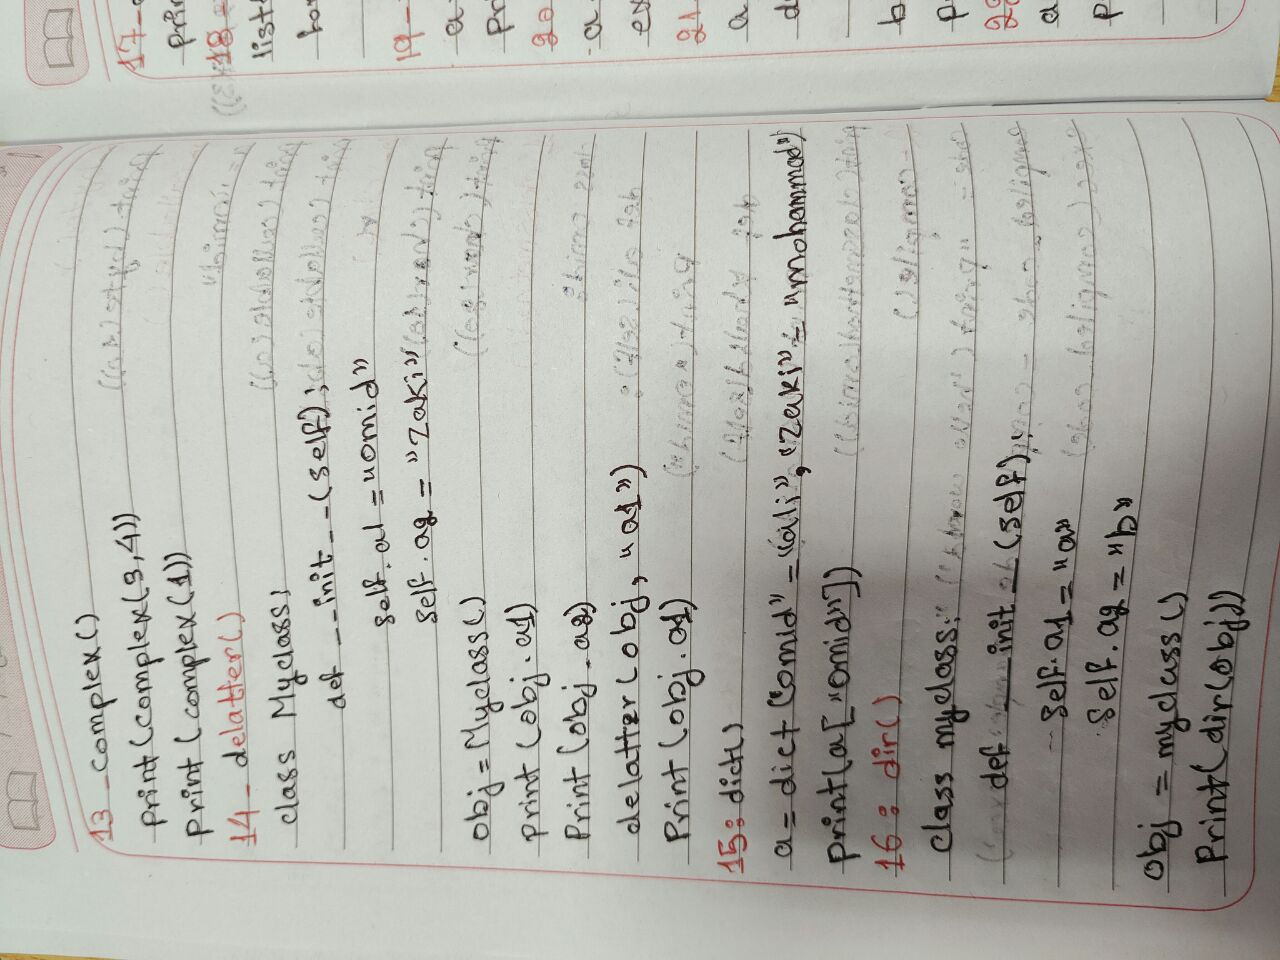 13 - complex()
print(complex(3,4))
print(complex(1))
14 - delatter()
class Myclass:
def __init__(self):
self.a1 = "omid"
self.a2 = "zaki"
obj = Myclass()
print(obj.a1)
print(obj.a2)
delatter(obj, "a1")
print(obj.a1)
15: dict()
a = dict("omid" = "ali", "zaki" = "mohammad")
print(a["omid"])
16: dir()
class myclass:
def __init__(self):
self.a1 = "a"
self.a2 = "b"
obj = myclass()
print(dir(obj))
17-
prin
18-
list
for
19-
a
pri
20
a
21
a
d
b
p
a
p